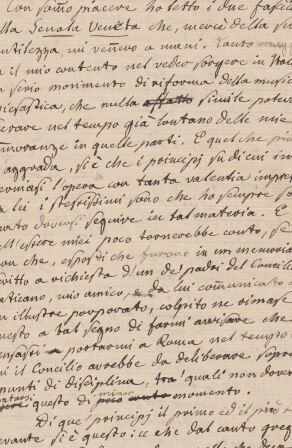 Con sommo piacere ho letto i due fasci
lla Scuola Veneta che, mercè della su
ntilezza mi vennero a mani. Tanto mag
a il mio contento nel veder sorgere in Ital
serio movimento di riforma della musica
clesiastica, che nulla affatto simile potev
erare nel tempo già lontano delle mie
imoranze in quelle parti. E quel che più
aggrada, si è che i principj su di cui in
ermasi l'opera con tanta valentia impre
a lui i stessissimi sono che ho sempre so
nuto doversi seguire in tal materia. E
ll'essere miei poco tornerebbe conto, se
on che, esposti che furono in un memoria
critto a richiesta d'un de' padri del Concilio
aticano, mio amico, e da lui comunicato a
un illustre porporato, colpito ne rimase
questo a tal segno di farmi avvisare che
ensassi a portarmi a Roma nel tempo
i il Concilio avrebbe da deliberare sopra
punti di disciplina, tra quali non dover
questo di poco conto momento.
minor
Di que' principj il primo ed il più r
evante si è questo: che dal canto greg